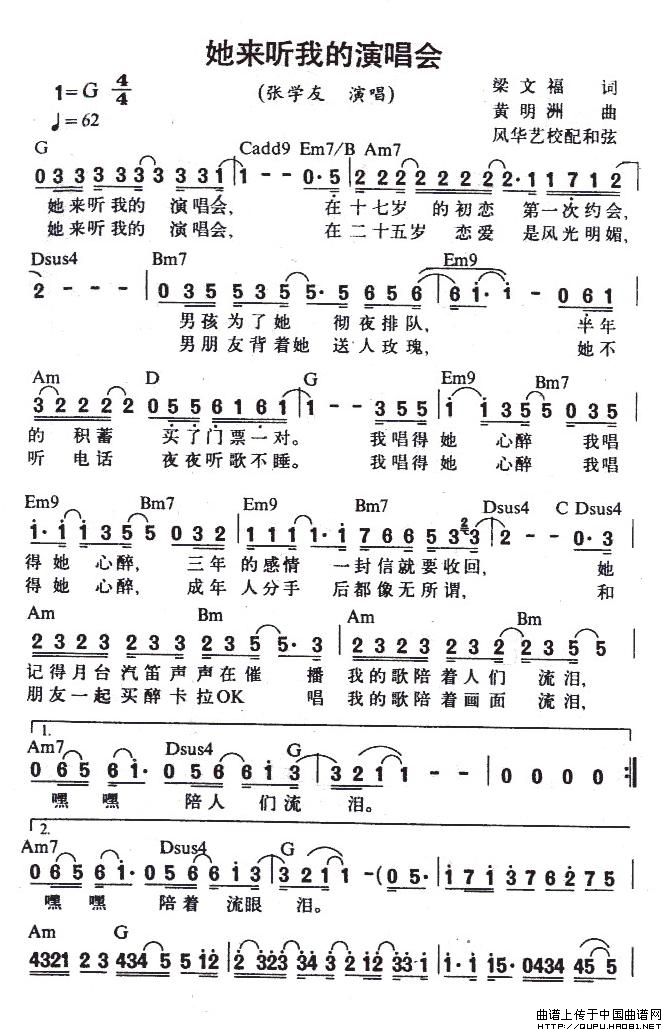 她来听我的演唱会
1=G 4/4
(张学友 演唱)
梁文福 词
♩=62
黄明洲 曲
风华艺校配和弦
G Cadd9 Em7/B Am7
0 3 3 3 3 3 3 3 3 3 1 | 1 - - 0·5 | 2 2 2 2 2 2 2 2 2·1 1 7 1 2 |
她来听我的 演唱会, 在十七岁 的初恋 第一次约会,
她来听我的 演唱会, 在二十五岁 恋爱 是风光明媚,
Dsus4 Bm7 Em9
2 - - - | 0 3 5 5 3 5 5· 5 6 5 6 | 6 1· 1 - 0 6 1 |
男孩为了她 彻夜排队, 半年
男朋友背着她 送人玫瑰, 她不
Am D G Em9 Bm7
3 2 2 2 2 0 5 5 6 1 6 1 | 1 - - 3 5 5 | 1 1 3 5 5 0 3 5 |
的 积蓄 买了门票一对。 我唱得她 心醉 我唱
听 电话 夜夜听歌不睡。 我唱得她 心醉 我唱
Em9 Bm7 Em9 Bm7 Dsus4 C Dsus4
1· 1 1 3 5 5 0 3 2 | 1 1 1 1 1· 1 7 6 6 5 3 3 | 2 - - 0·3 |
得她 心醉, 三年 的感情 一封信就要收回, 她
得她 心醉, 成年 人分手 后都像无所谓, 和
Am Bm Am Bm
2 3 2 3 2 3 3 2 3 5 5· 3 | 2 3 2 3 2 3 2 2 3 5 5 |
记得月台 汽笛声声在催 播 我的歌陪着人们 流泪,
朋友一起 买醉卡拉OK 唱 我的歌陪着画面 流泪,
1.
Am7 Dsus4 G
0 6 5 6 1· 0 5 6 6 1 3 | 3 2 1 1 - - | 0 0 0 0 :|
嘿 嘿 陪人 们流 泪。
2.
Am7 Dsus4 G
0 6 5 6 1· 0 5 6 6 1 3 | 3 2 1 1 -(0 5· | 1 7 1 3 7 6 2 7 5 |
嘿 嘿 陪着 流眼 泪。
Am G
4321 2 3 434 5 5 12 | 2 323 34 3 2 12 33·1 | 1·1 15· 0434 45 5 |
曲谱上传于中国曲谱网
HTTP://QUPU.HAO81.NET